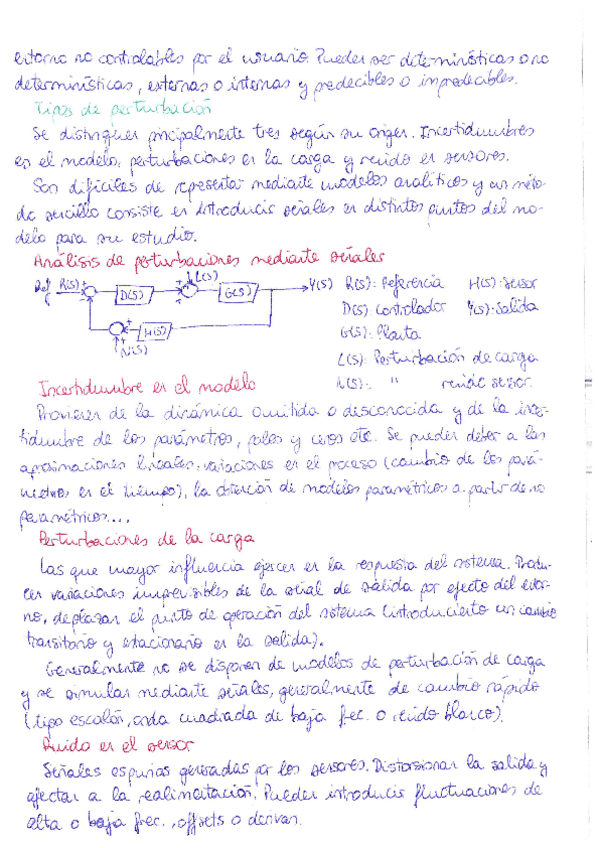 entorno no controlables por el usuario. Pueden ser determinísticas o no
determinísticas, externas o internas y predecibles o impredecibles.
Tipos de perturbación
Se distinguen principalmente tres según su origen. Incertidumbres
en el modelo, perturbaciones en la carga y ruido en sensores.
Son difíciles de representar mediante modelos analíticos y un méto-
do sencillo consiste en introducir señales en distintos puntos del mo-
delo para su estudio.
Análisis de perturbaciones mediante señales
Ref R(s) + - D(s) + - L(s) G(s) Y(s) R(s): Referencia H(s): Sensor
D(s): Controlador Y(s): Salida
H(s) + + N(s) G(s): Planta
L(s): Perturbación de carga
N(s): " ruido sensor.
Incertidumbre en el modelo
Provienen de la dinámica omitida o desconocida y de la incer-
tidumbre de los parámetros, polos y ceros etc. Se pueden deber a las
aproximaciones lineales, variaciones en el proceso (cambio de los pará-
metros en el tiempo), la obtención de modelos paramétricos a partir de no
paramétricos...
Perturbaciones de la carga
Las que mayor influencia ejercen en la respuesta del sistema. Produ-
cen variaciones imprevisibles de la señal de salida por efecto del entor-
no, desplazan el punto de operación del sistema (introduciento un cambio
transitorio y estacionario en la salida).
Generalmente no se disponen de modelos de perturbación de carga
y se simulan mediante señales, generalmente de cambio rápido
(tipo escalón, onda cuadrada de baja frec. o ruido blanco).
Ruido en el sensor
Señales espurias generadas por los sensores. Distorsionan la salida y
afectan a la realimentación. Pueden introducir fluctuaciones de
alta o baja frec., offsets o derivan.